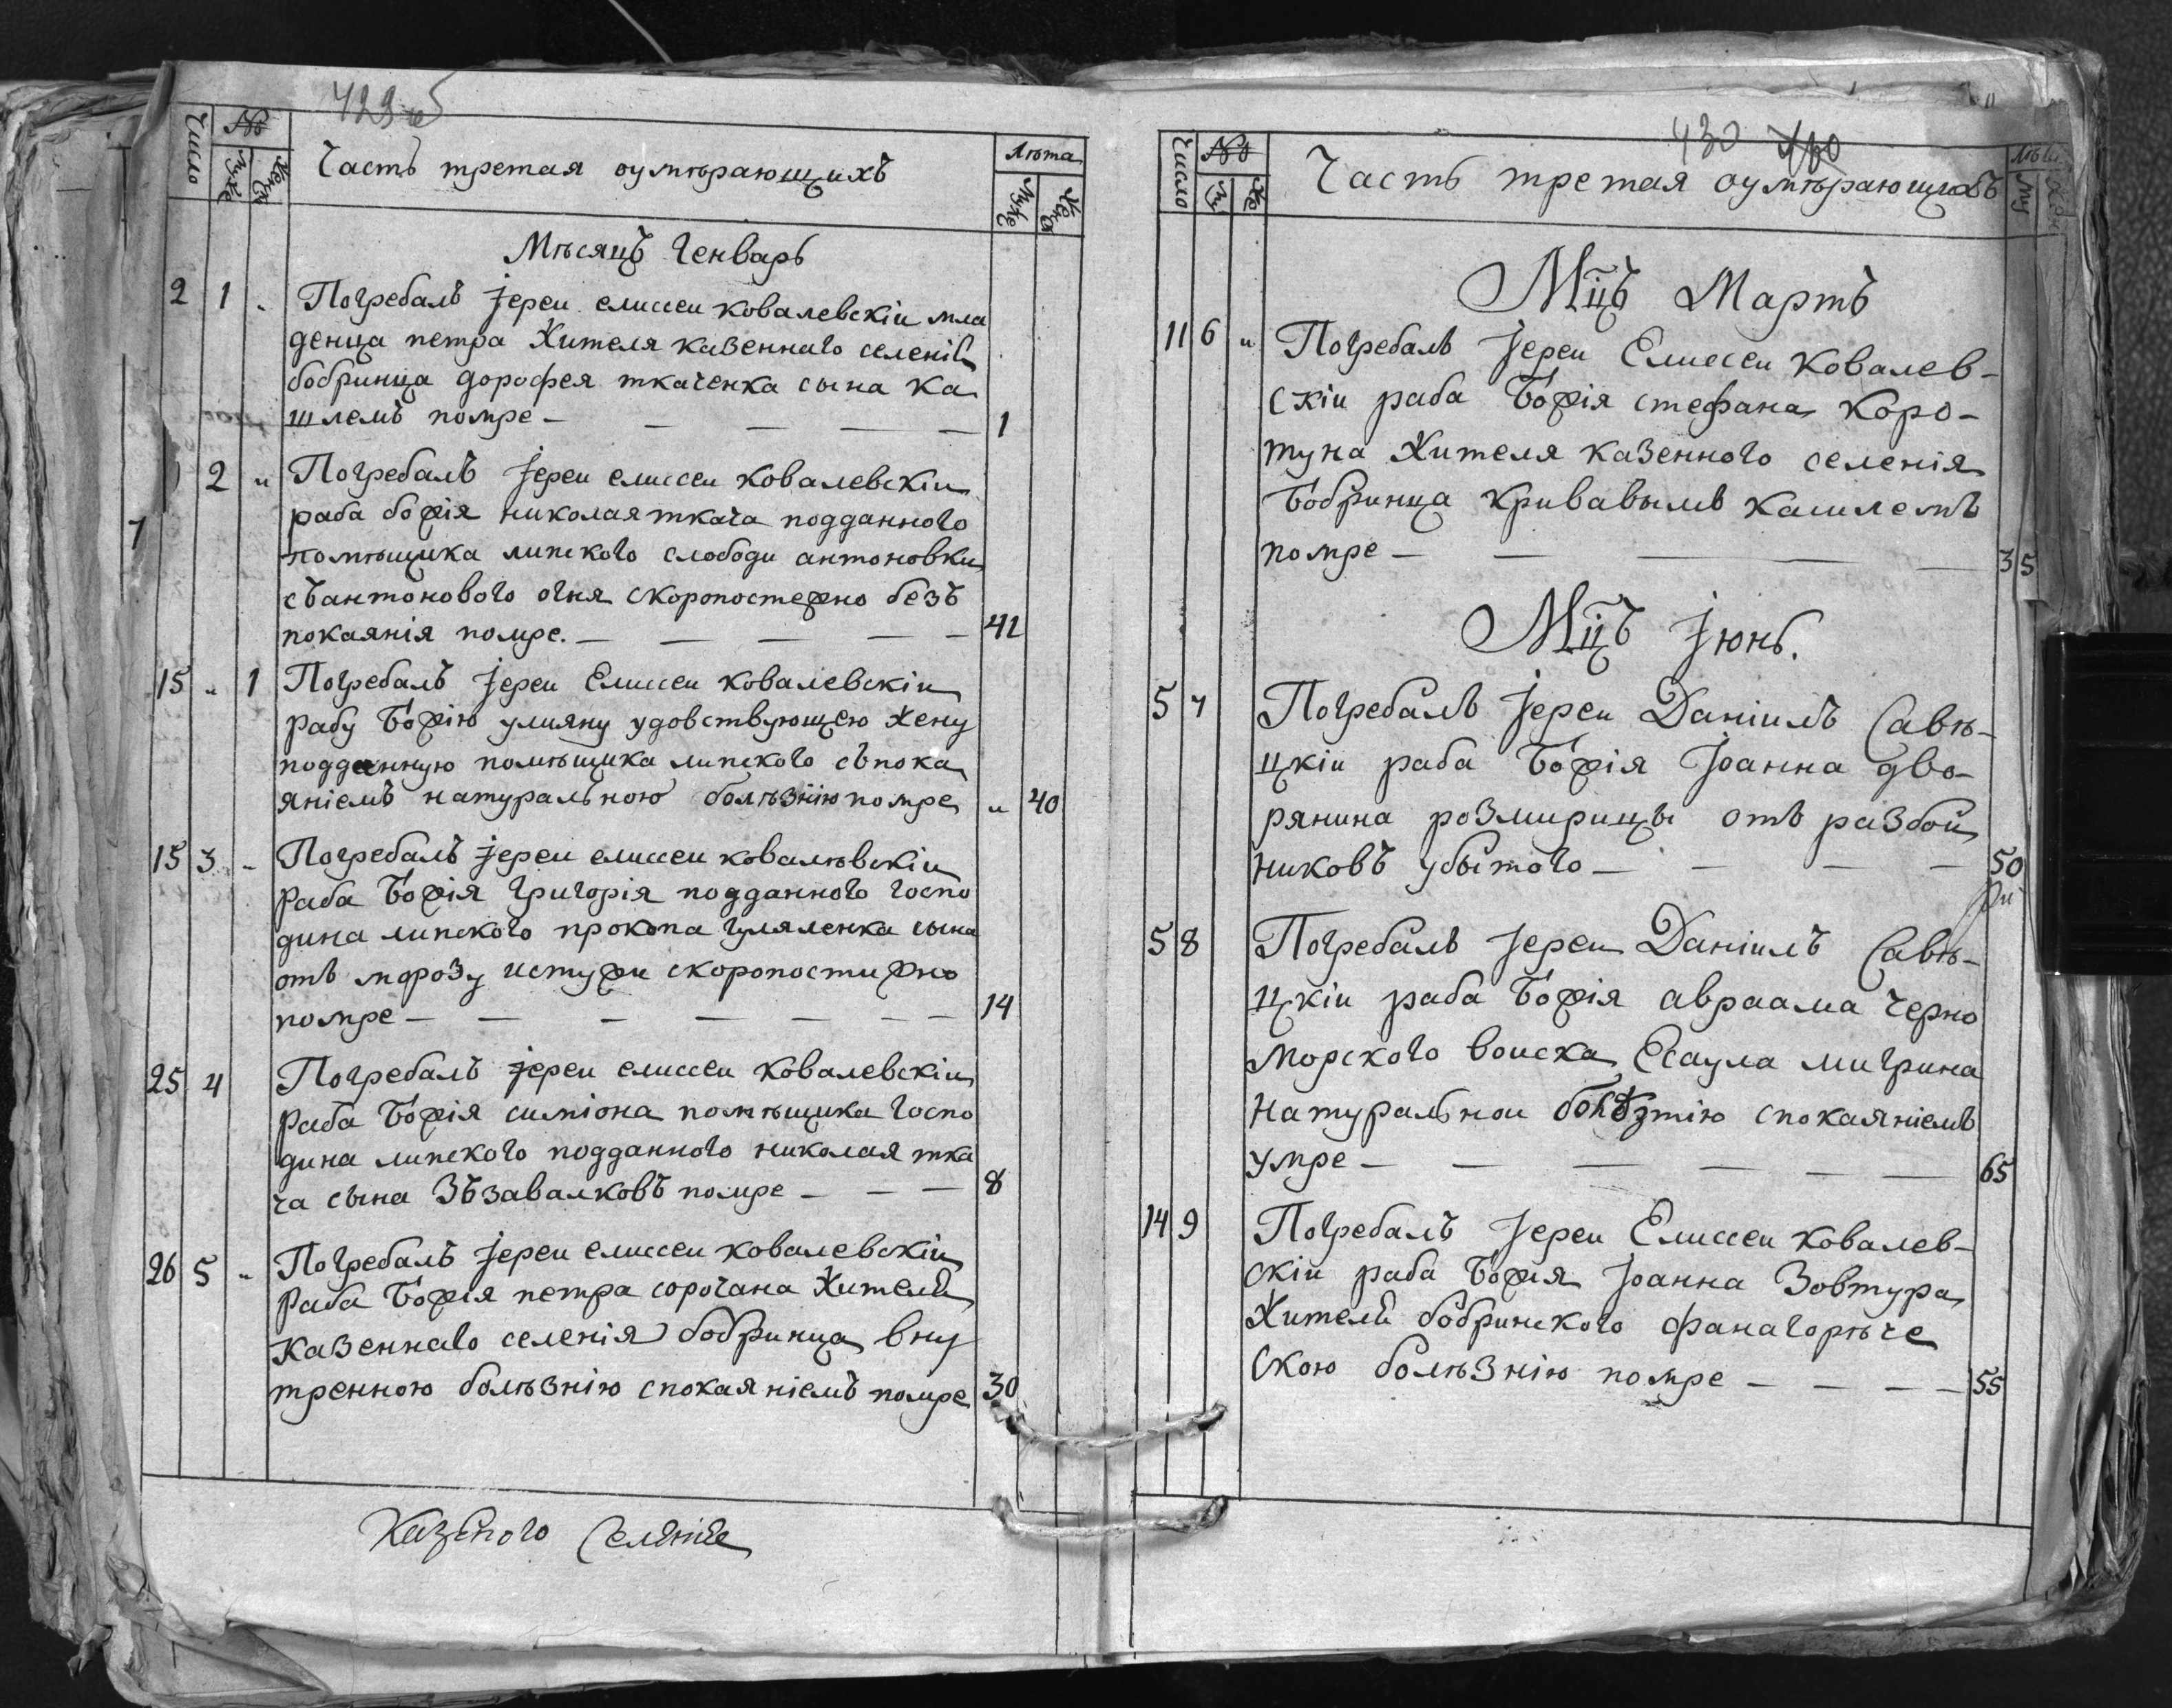 429 об
Число № Муже Женс Часть третая оумѣрающихъ Лѣта Муже Женс
Мѣсяцъ Генварь
2 1 „ Погребалъ Іереи елиссеи ковалевскіи мла
денца петра Жителя казеннаго селенія
бобринца дорофея ткаченка сына ка
шлемъ помре — — — — — 1
2 „ Погребалъ Іереи елиссеи ковалевскіи
раба божія николая ткача подданного
помѣщика липского слободи антоновки
съантонового огня скоропостежно безъ
покаянія помре. — — — — — 42
15 „ 1 Погребалъ Іереи Елиссеи ковалевскіи
рабу Божію улияну удовствующею жену
подданную помѣщика липского съпока
яніемъ натуральною болѣзнію помре „ 40
15 3 „ Погребалъ Іереи елиссеи ковалѣвскіи
раба Божія Григорія подданного госпо
дина липского прокопа гуляленка сына
отъ морозу истужи скоропостижно
помре — — — — — — — 14
25 4 Погребалъ Іереи елиссеи ковалевскіи
раба Божія симіона помѣщика госпо
дина липского подданного николая тка
ча сына Зъзавалковъ помре — — — 8
26 5 „ Погребалъ Іереи елиссеи ковалевскіи
раба Божія петра сорочана Жителя
казеннаго селенія бобринца вну
тренною болѣзнію спокаяніемъ помре 30
Казеного Селенія
430
Число № Му Же Часть третая оумѣрающихъ Лѣта Му Же
Мцъ Мартъ
11 6 „ Погребалъ Іереи Елиссеи Ковалев-
скіи раба Божія стефана Коро-
туна Жителя казенного селенія
Бобринца кривавымъ кашлемъ
помре — — — — 35
Мцъ Іюнь.
5 7 Погребалъ Іереи Даніилъ Савѣ-
цкіи раба Божія Іоанна дво-
рянина розмирицы отъ разбои
никовъ убытого — — — — 50
5 8 Погребалъ Іереи Даніилъ Савѣ-
цкіи раба Божія авраама Черно
морского воиска Есаула мигрина
натуральнои болѣзнію спокаяніемъ
умре — — — — — — 65
14 9 Погребалъ Іереи Елиссеи ковалев-
скіи раба Божія Іоанна Зовтура
Жителя бобринского фанагорѣче
скою болѣзнію помре — — — — 55